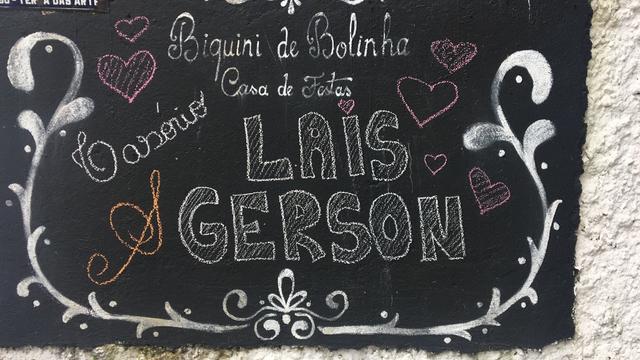 Biquini de Bolinha
Casa de Festas
Casório
LAÍS
&
GERSON